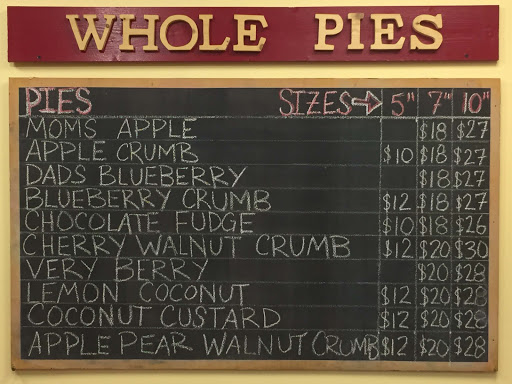 WHOLE PIES
PIES SIZES→ 5" 7" 10"
MOMS APPLE $18 $27
APPLE CRUMB $10 $18 $27
DADS BLUEBERRY $18 $27
BLUEBERRY CRUMB $12 $18 $27
CHOCOLATE FUDGE $10 $18 $26
CHERRY WALNUT CRUMB $12 $20 $30
VERY BERRY $20 $28
LEMON COCONUT $12 $20 $28
COCONUT CUSTARD $12 $20 $28
APPLE PEAR WALNUT CRUMB $12 $20 $28